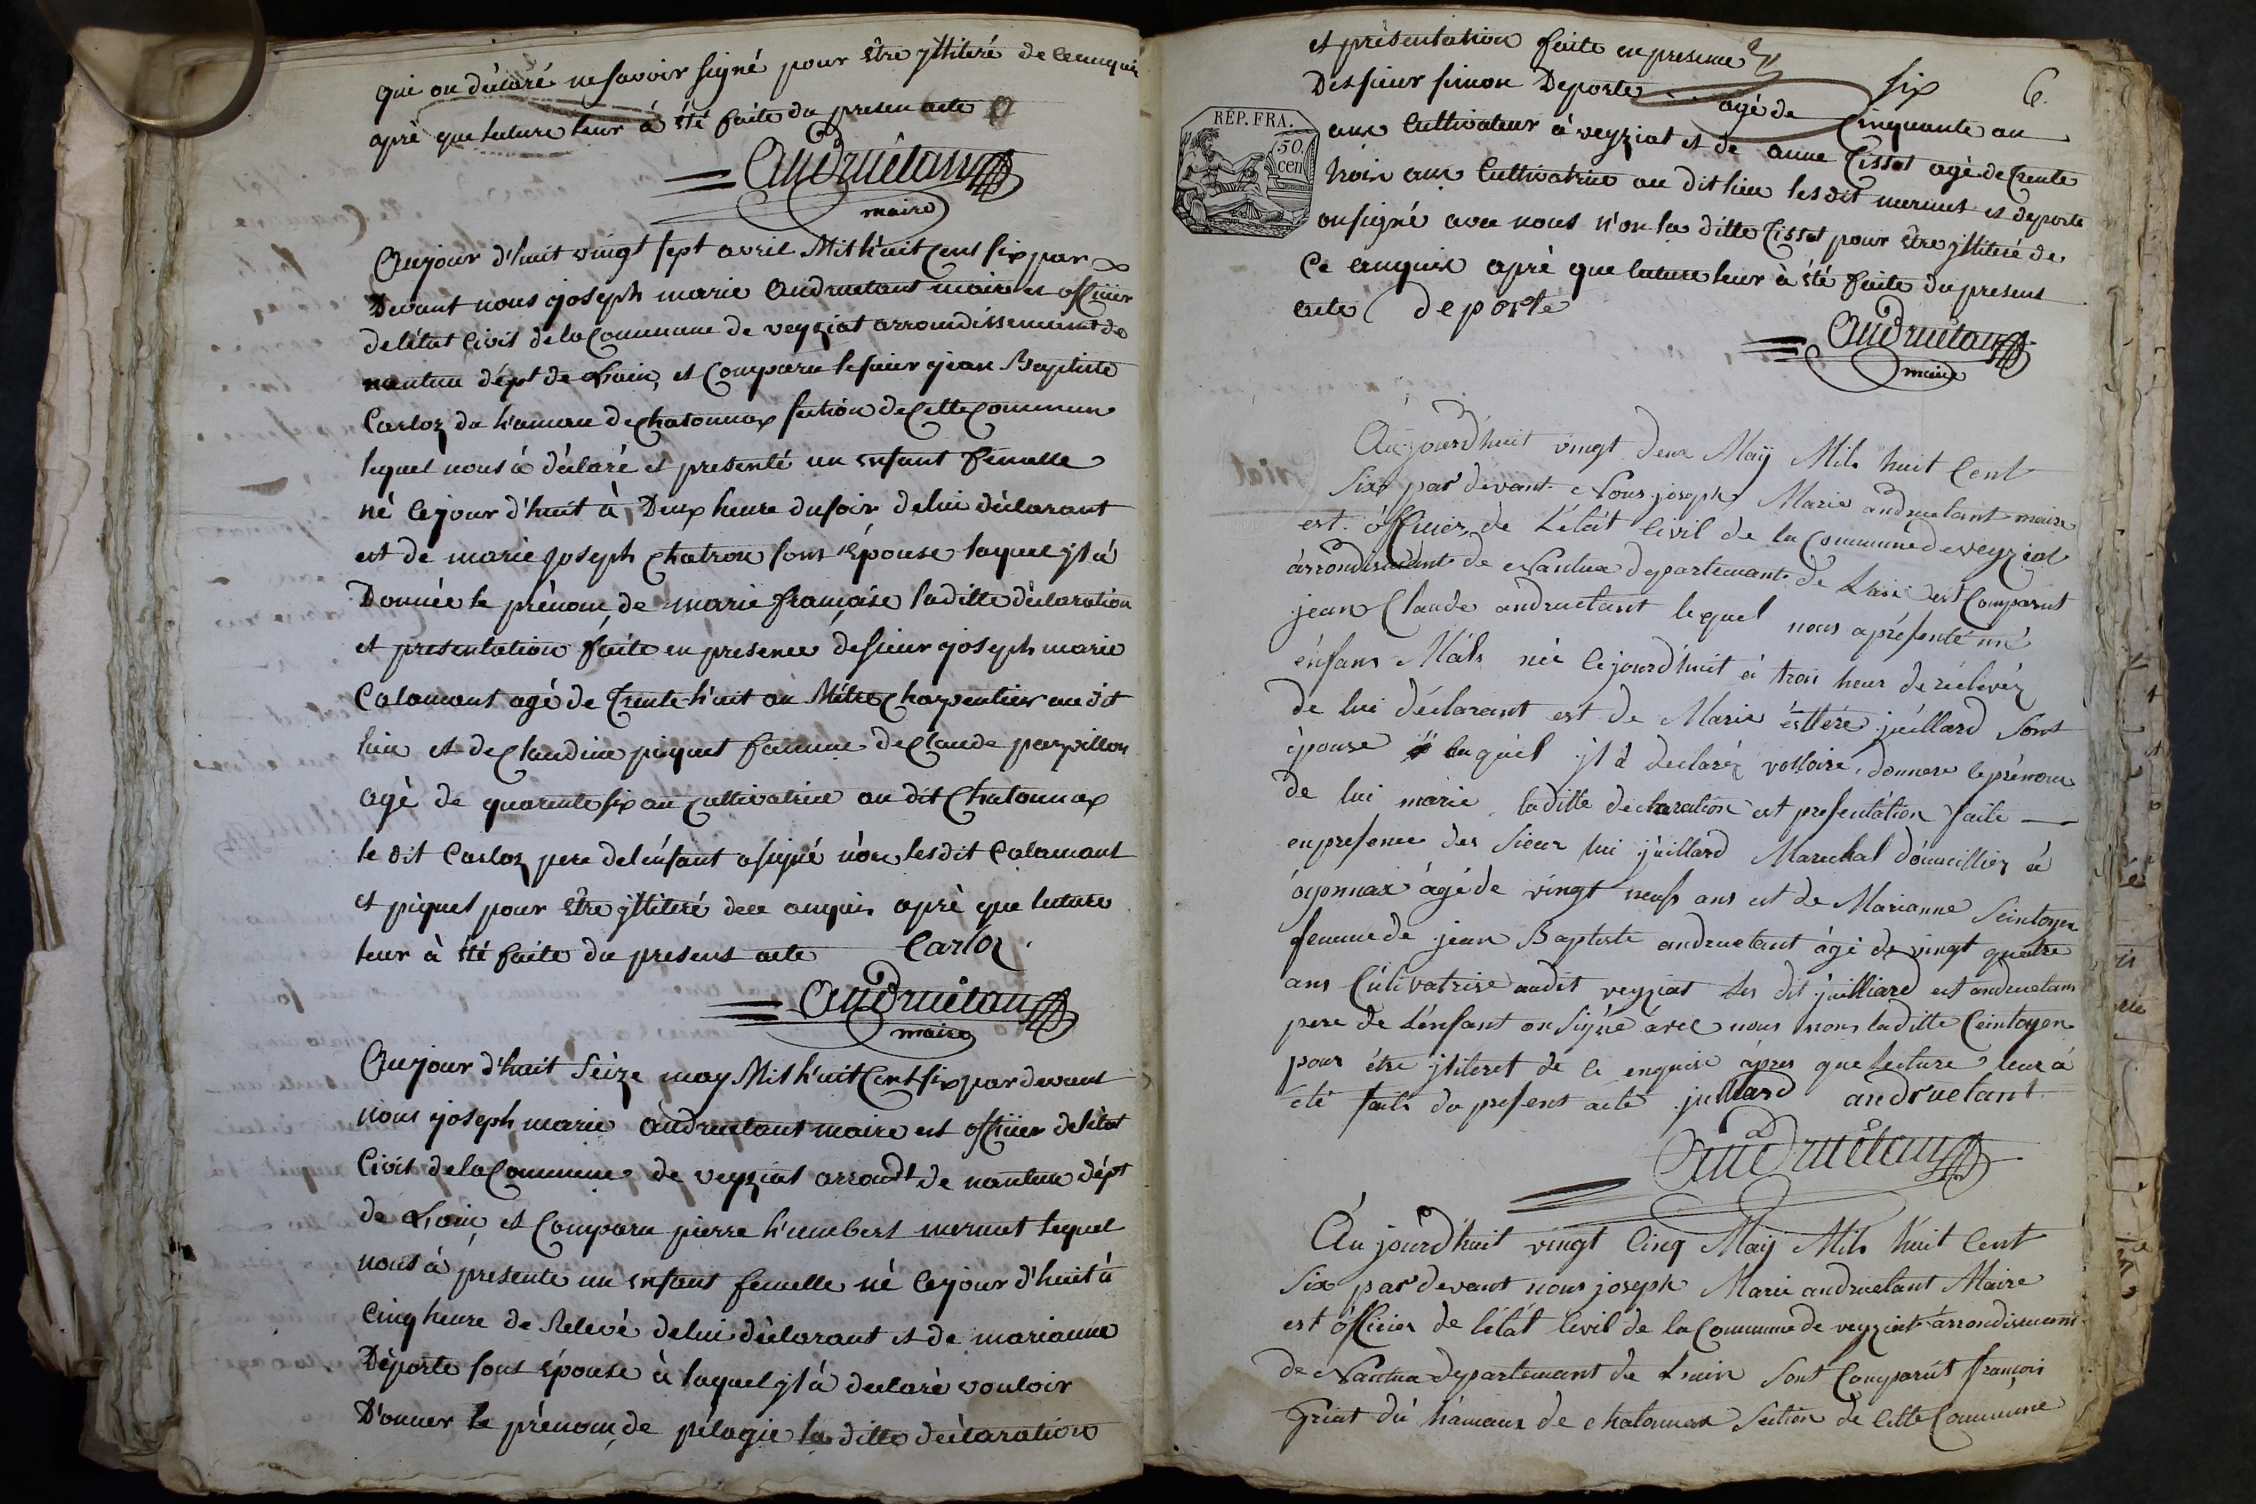 qui on déclaré ne savoir signé pour être jllitéré de ce enquis
aprè que luture leur à été faite du presen acte
Andruétan
maire
Aujour d'huit vingt sept avril Mil h'uit Cent six par
Devant nous joseph marie Andruetant maire et officier
de l'état Civil de la Commune de veyziat arroundissement de
nantua dépt de L'ain, et Comparu le sieur jean Baptiste
Carloz du h'ameau de Chatonnax section de Cette Commune
lequel nous à déclaré et presenté un enfant fémelle
né Cejour d'huit à Deux heure du soir de lui déclarant
est de marie joseph Chatron sont Épouse laquel jl à
Donnée le prénom de marie françaïse la ditte déclaration
et presentation faite en presence de sieur joseph marie
Calamant agé de Trente h'uit an Mêtre Charpentier au dit
lieu et de Claudine piquet famme de Claude parpillon
agé de quarente six an Cultivatrice au dit Chatonnax
le dit Carloz pere de l'énfant a signé n'on les dit Calamant
et piquet pour être jllitéré de ce enquis aprè que luture
leur à été faite du presens acte Carloz
Andruétan
maire
Aujour d'huit Seize may Mil h'uit Cent six par devant
nous joseph marie Andruetant maire est officier de l'état
Civil de la Commune de veyziat arroudt de nantua dépt
de L'ain, et Comparu pierre h'umbert mermet lequel
nous à presente un enfant femelle né Cejour d'huit à
Cinq heure de Relevé de lui déclarant et de marianne
Déporte sont épouse à laquel jl à declaré vouloir
D'onner le prénom de pélagie la ditte déclaration
et présentation faite en presence
Des sieur simon Deporte agé de Cinquante an
six 6.
RÉP. FRA.
50. cen
aux Cultivateur à veyziat et de anne Tissot agé de Trente
troix aux Cultivatrice au dit lieu les dit mermet et deporte
on signé avec nous n'on la ditte Tissot pour être jllitéré de
Ce enquis aprè que luture leur à été faite du presens
acte deporte
Andruétan
maire
Aujourdhuit vingt deux Maÿ Mils huit Cent
Six par devant Nous joseph Marie andruetant maire
est officier de L'état Civil de la Commune de veyziat
arrondissement de Nantua departemant de Lain est Comparut
jean Claude andruetant lequel nous a présenté un
énfans Mâls née Cejourdhuit à trois heur de rélévéz
de lui déclarant est de Marie éstére juillard Sont
épouse a laquél jl à declaréz volloire donnere le prénom
de lui marie la ditte declaration est presentation faite
en presence des Sieur lui juillard Marechal domicilliez à
oyonnax âgé de vingt neufs ans est de Marianne Seintoyen
femme de jean Baptiste andruetant âgé de vingt quatre
ans Cultivatrise audit veyziat les dit juilliard est andruetant
pere de L'énfant on Signé avec nous nons laditte Ceintoyen
pour étre jliteret de ce enquise âpres que lecture leur à
été faite du presens acte juillard andruetant
Andruétan
Au jourdhuit vingt Cinq Maÿ Mils huit Cent
Six par devant nous joseph Marie andruetant Maire
est officier de l'état Civil de la Commune de veyziat arrondissement
de Nantua departemant de Lain Sont Comparut françois
Griat du hamaux de chatonnax Section de Cette Commune